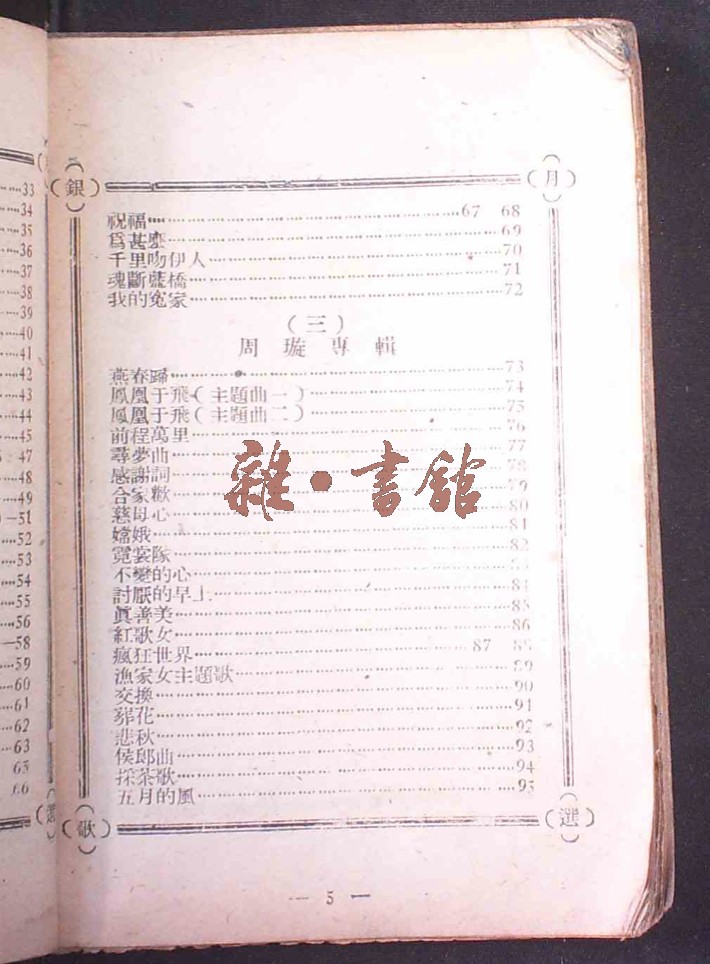 33
34
35
36
37
38
39
40
41
42
43
44
45
47
48
49
—51
52
53
54
55
56
—58
59
60
61
62
63
65
66
銀 月
祝福 67 68
爲甚麽 69
千里吻伊人 70
魂斷藍橋 71
我的寃家 72
(三)
周璇專輯
燕春歸 73
鳳凰于飛(主題曲一) 74
鳳凰于飛(主題曲二) 75
前程萬里 76
尋夢曲 77
感謝詞 78
合家歡 79
慈母心 80
嫦娥 81
霓裳隊 82
不變的心
討厭的早上 84
眞善美 85
紅歌女 86
瘋狂世界 87 88
漁家女主題歌 89
交換 90
葬花 91
悲秋 92
侯郎曲 93
採茶歌 94
五月的風 95
歌 選
— 5 —
雜·書館